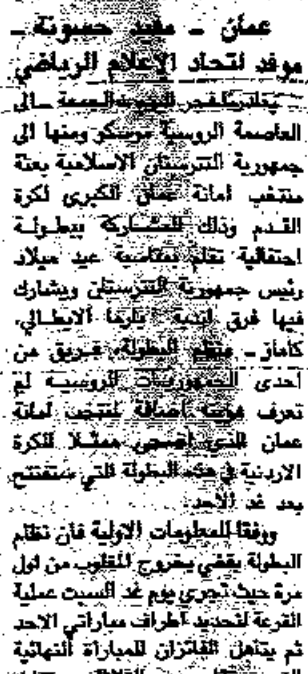 عمان - مفيد حسونة -
موفد اتحاد الإعلام الرياضي
يغادرنا فجر اليوم الجمعة - الى
العاصمة الروسية موسكو ومنها الى
جمهورية التترستان الاسلامية بعثة
منتخب امانة عمان الكبرى لكرة
القدم وذلك للمشاركة ببطولة
احتفالية تقام بمناسبة عيد ميلاد
رئيس جمهورية التترستان ويشارك
فيها فرق اندية الايطالي،
كاماز - منظم البطولة، فريق من
احدى الجمهوريات الروسية لم
تعرف هويته اضافة لمنتخب امانة
عمان الذي اضحى ممثلا للكرة
الاردنية في هذه البطولة التي ستفتتح
بعد غد الاحد.
ووفقا للمعلومات الاولية فان نظام
البطولة يقضي بخروج المغلوب من اول
مرة حيث تجرى يوم غد السبت عملية
القرعة لتحديد اطراف مباراتي الاحد
ثم يتاهل الفائزان للمباراة النهائية